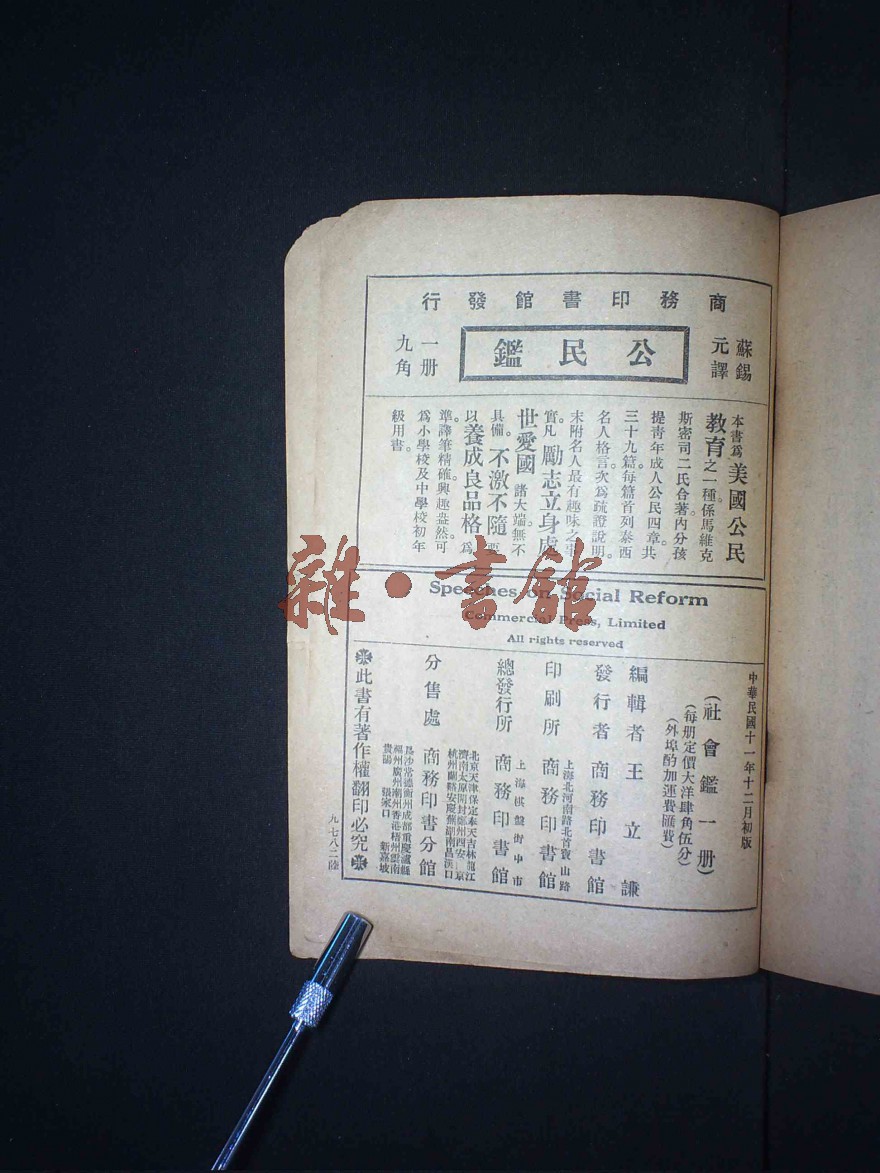 商務印書館發行
蘇錫
元譯
公民鑑
一册
九角
本書爲美國公民
教育之一種。係馬維克
斯密司二氏合著內分孩
提青年成人公民四章共
三十九篇。每篇首列泰西
名人格言。次爲疏證說明。
末附名人最有趣味之
實。凡勵志立身處
世愛國諸大端。無不
具備。不激不隨
以養成良品格爲
準。譯筆精確。興趣盎然可
爲小學校及中學校初年
級用書。
Speeches on Social Reform
Commercial Press, Limited
All rights reserved
中華民國十一年十二月初版
(社會鑑一册)
(每册定價大洋肆角伍分)
(外埠酌加運費匯費)
編輯者 王立謙
發行者 商務印書館
上海北河南路北首寶山路
印刷所 商務印書館
上海棋盤街中市
總發行所 商務印書館
北京天津保定奉天吉林龍江
濟南太原開封鄭州西安南京
杭州蘭谿安慶蕪湖南昌漢口
分售處 商務印書分館
長沙常德衡州成都重慶瀘縣
福州廣州潮州香港梧州雲南
貴陽 張家口 新嘉坡
此書有著作權翻印必究
九七八二陸
雜·書館